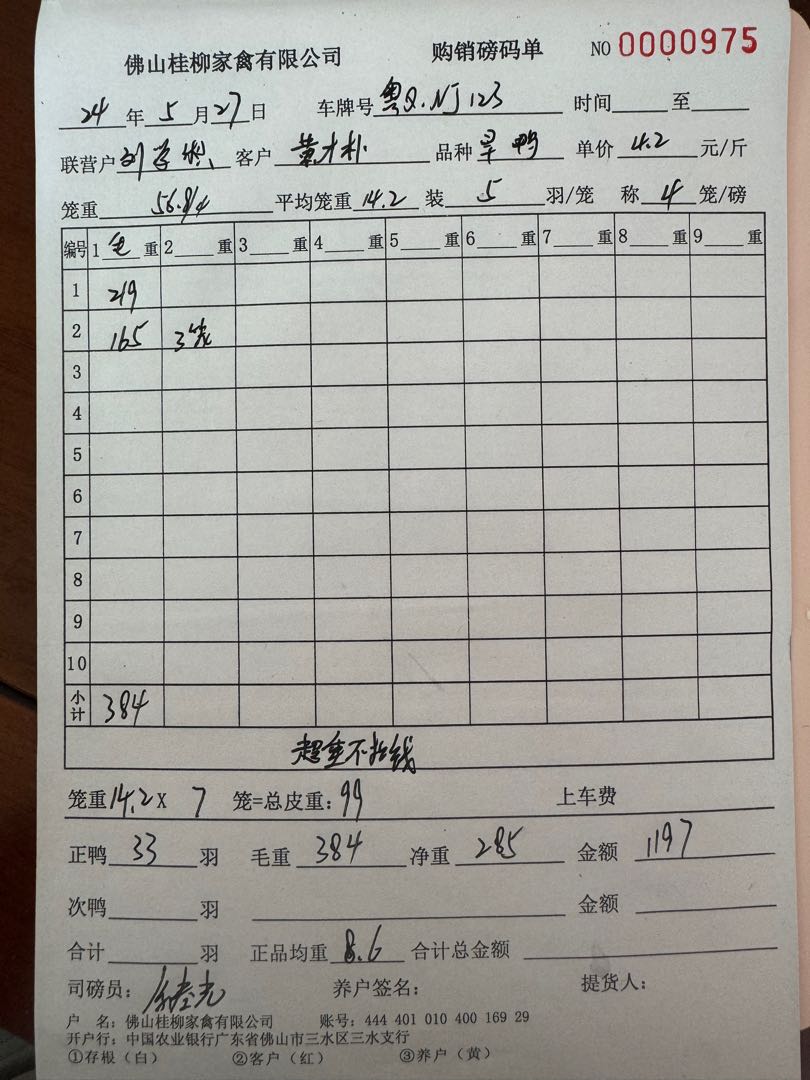 佛山桂柳家禽有限公司 购销磅码单 NO 0000975
24 年 5 月 27 日 车牌号 粤Q.NJ123 时间 至
联营户 刘 客户 黄才朴 品种 旱鸭 单价 4.2 元/斤
笼重 56.8/4 平均笼重 14.2 装 5 羽/笼 称 4 笼/磅
编号 1 毛 重 2 重 3 重 4 重 5 重 6 重 7 重 8 重 9 重
1 219
2 165 3笼
3
4
5
6
7
8
9
10
小计 384
超重不扣钱
笼重 14.2 X 7 笼=总皮重: 99 上车费
正鸭 33 羽 毛重 384 净重 285 金额 1197
次鸭 羽 金额
合计 羽 正品均重 8.6 合计总金额
司磅员: 养户签名: 提货人:
户 名: 佛山桂柳家禽有限公司 账号: 444 401 010 400 169 29
开户行: 中国农业银行广东省佛山市三水区三水支行
①存根(白) ②客户(红) ③养户(黄)